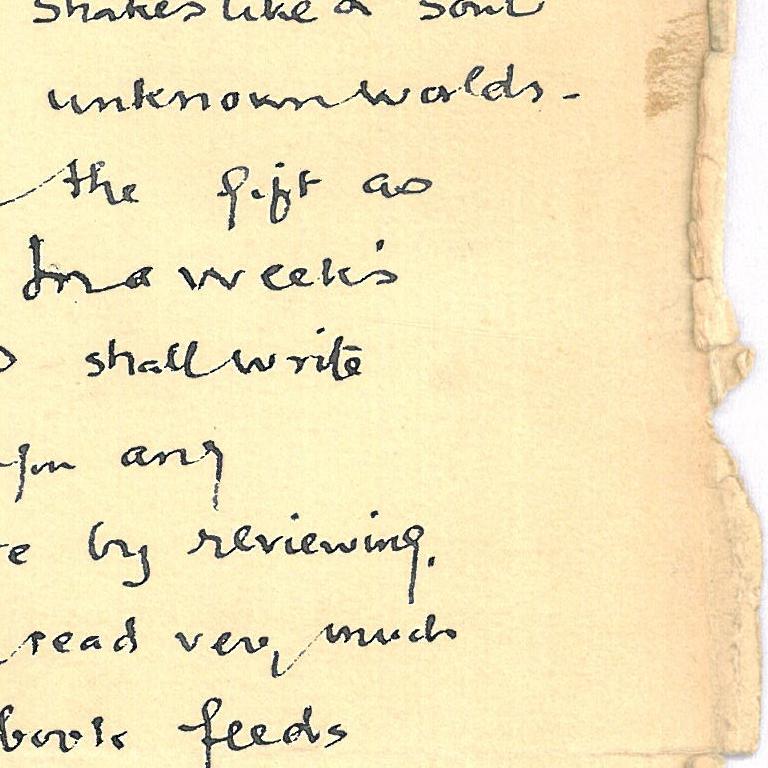 shakes like a soul
unknown worlds -
the gift as
In a week's
shall write
you any
by reviewing.
read very much
book feeds